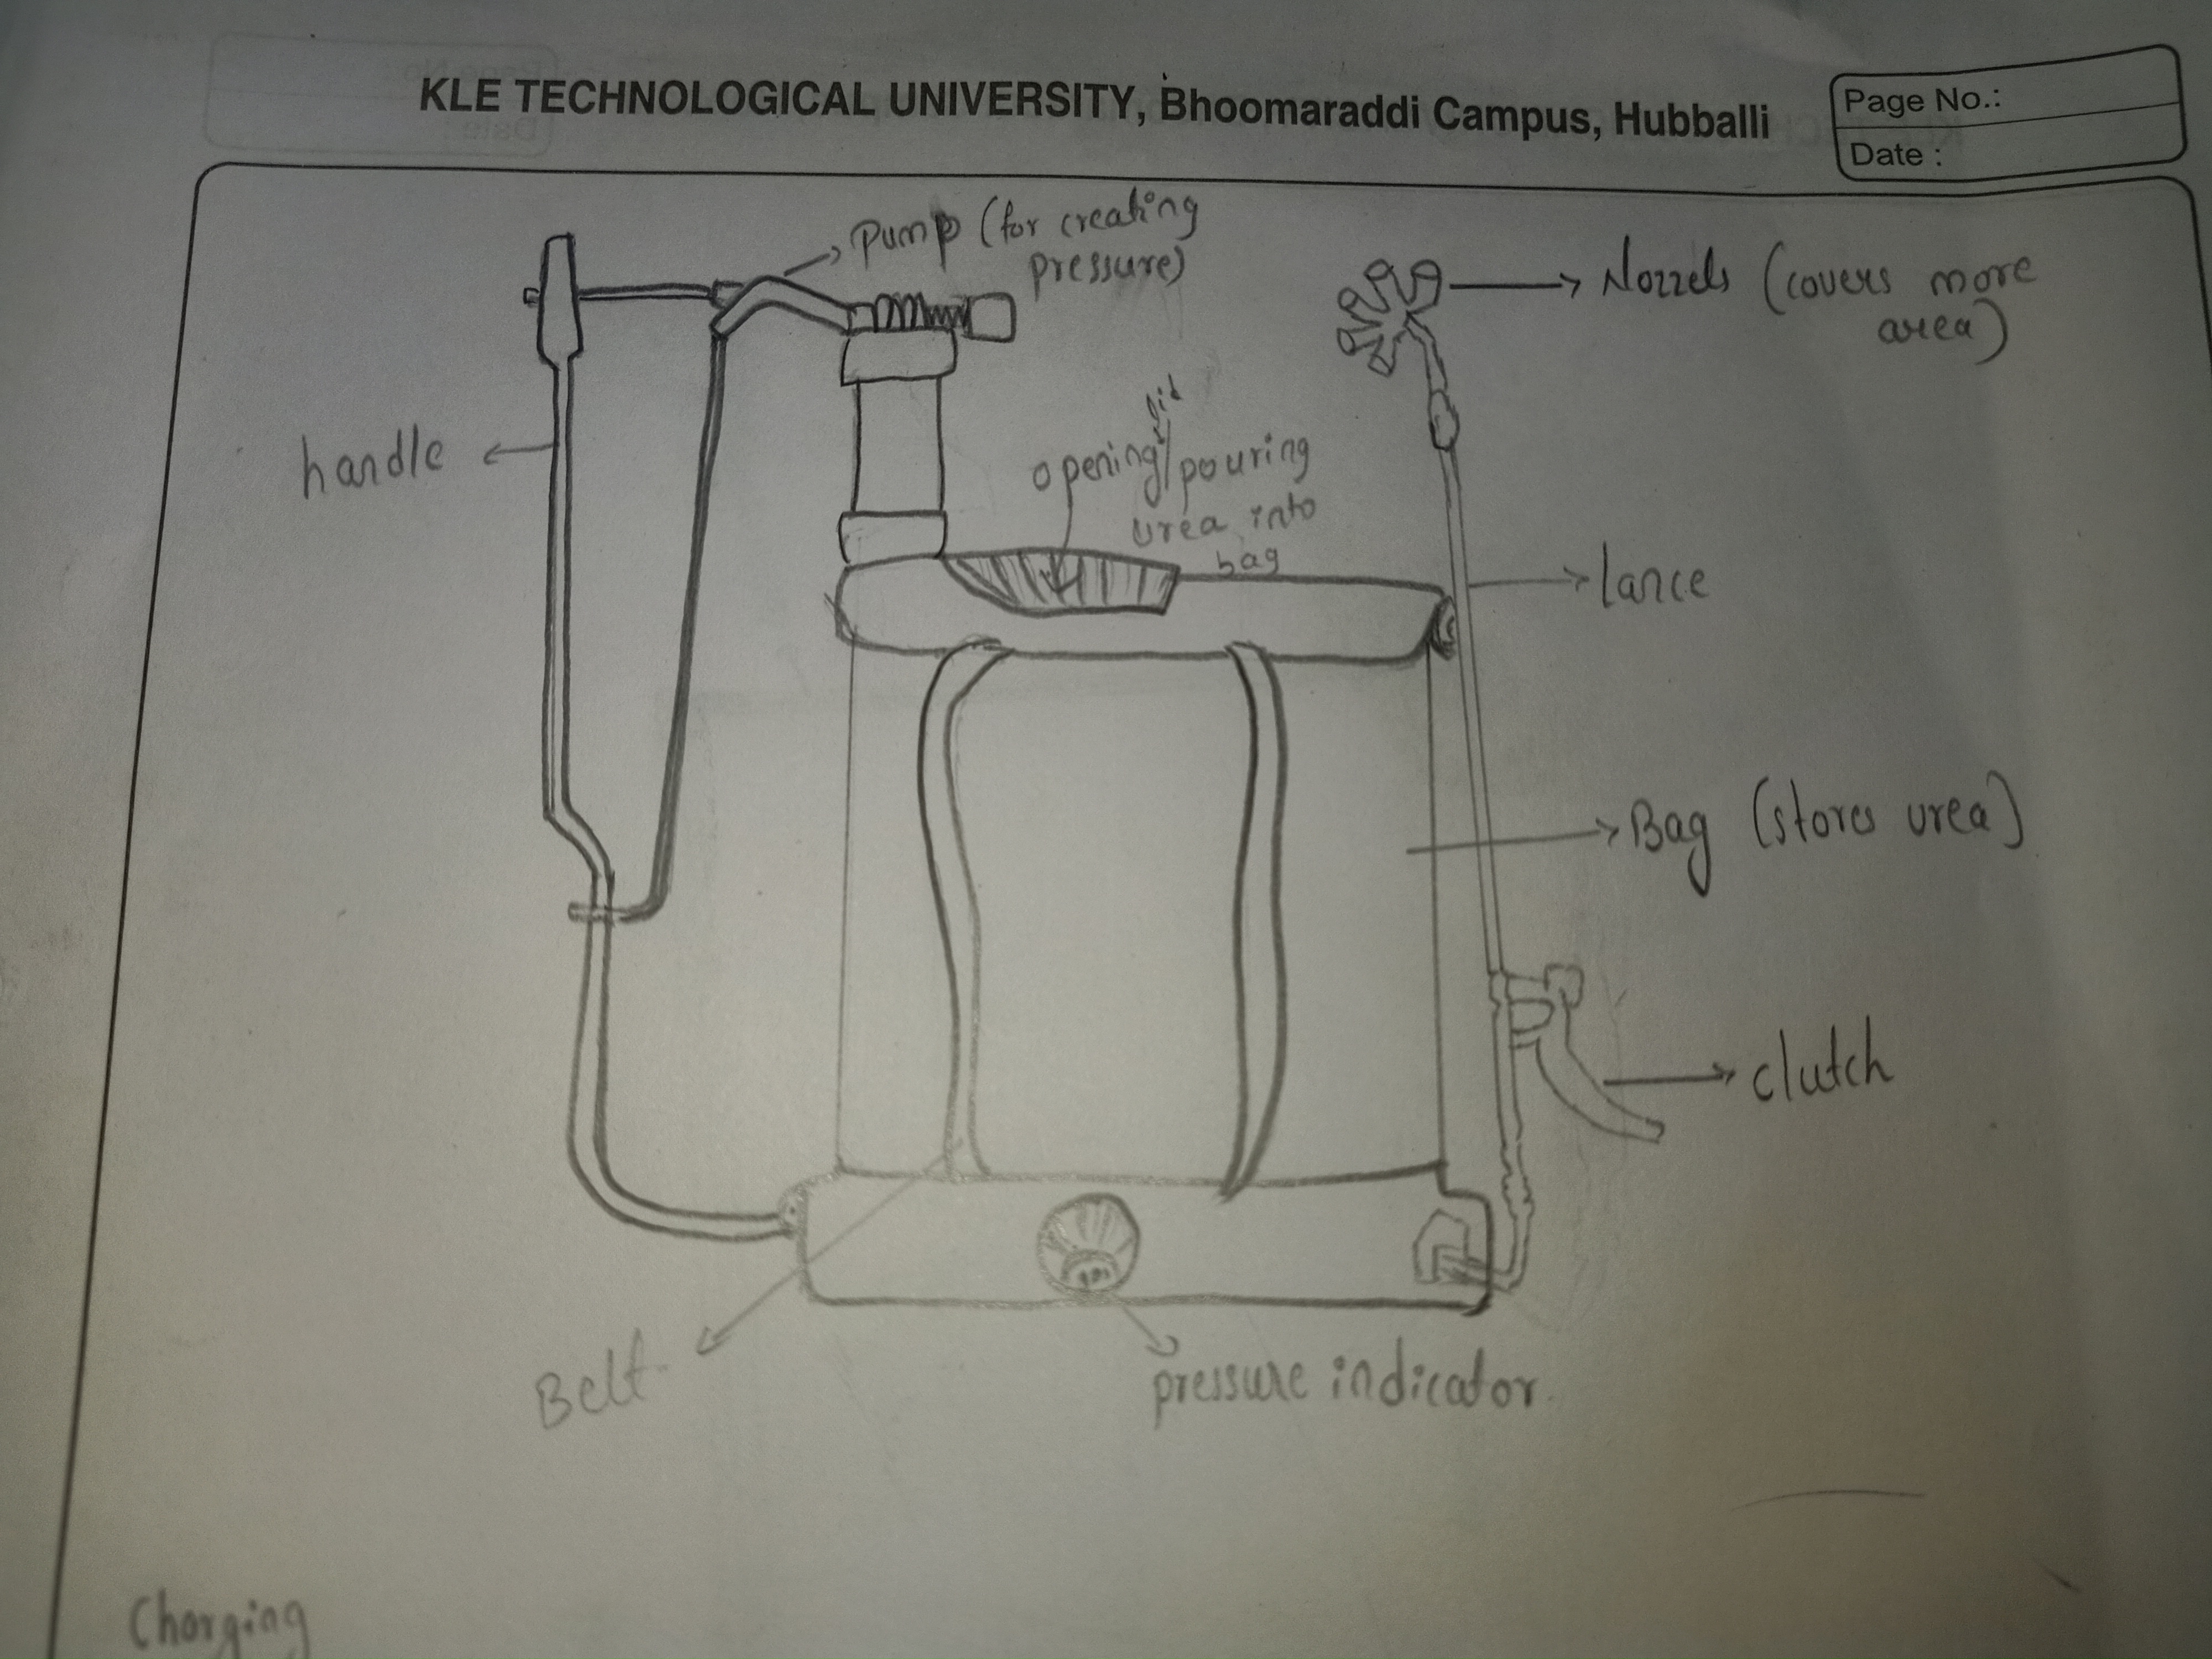 KLE TECHNOLOGICAL UNIVERSITY, Bhoomaraddi Campus, Hubballi
Page No.:
Date :
Pump (for creating
pressure)
Nozzels (covers more
area)
handle
lid
opening/pouring
urea into
bag
lance
Bag (stores urea)
clutch
Belt
pressure indicator.
Charging